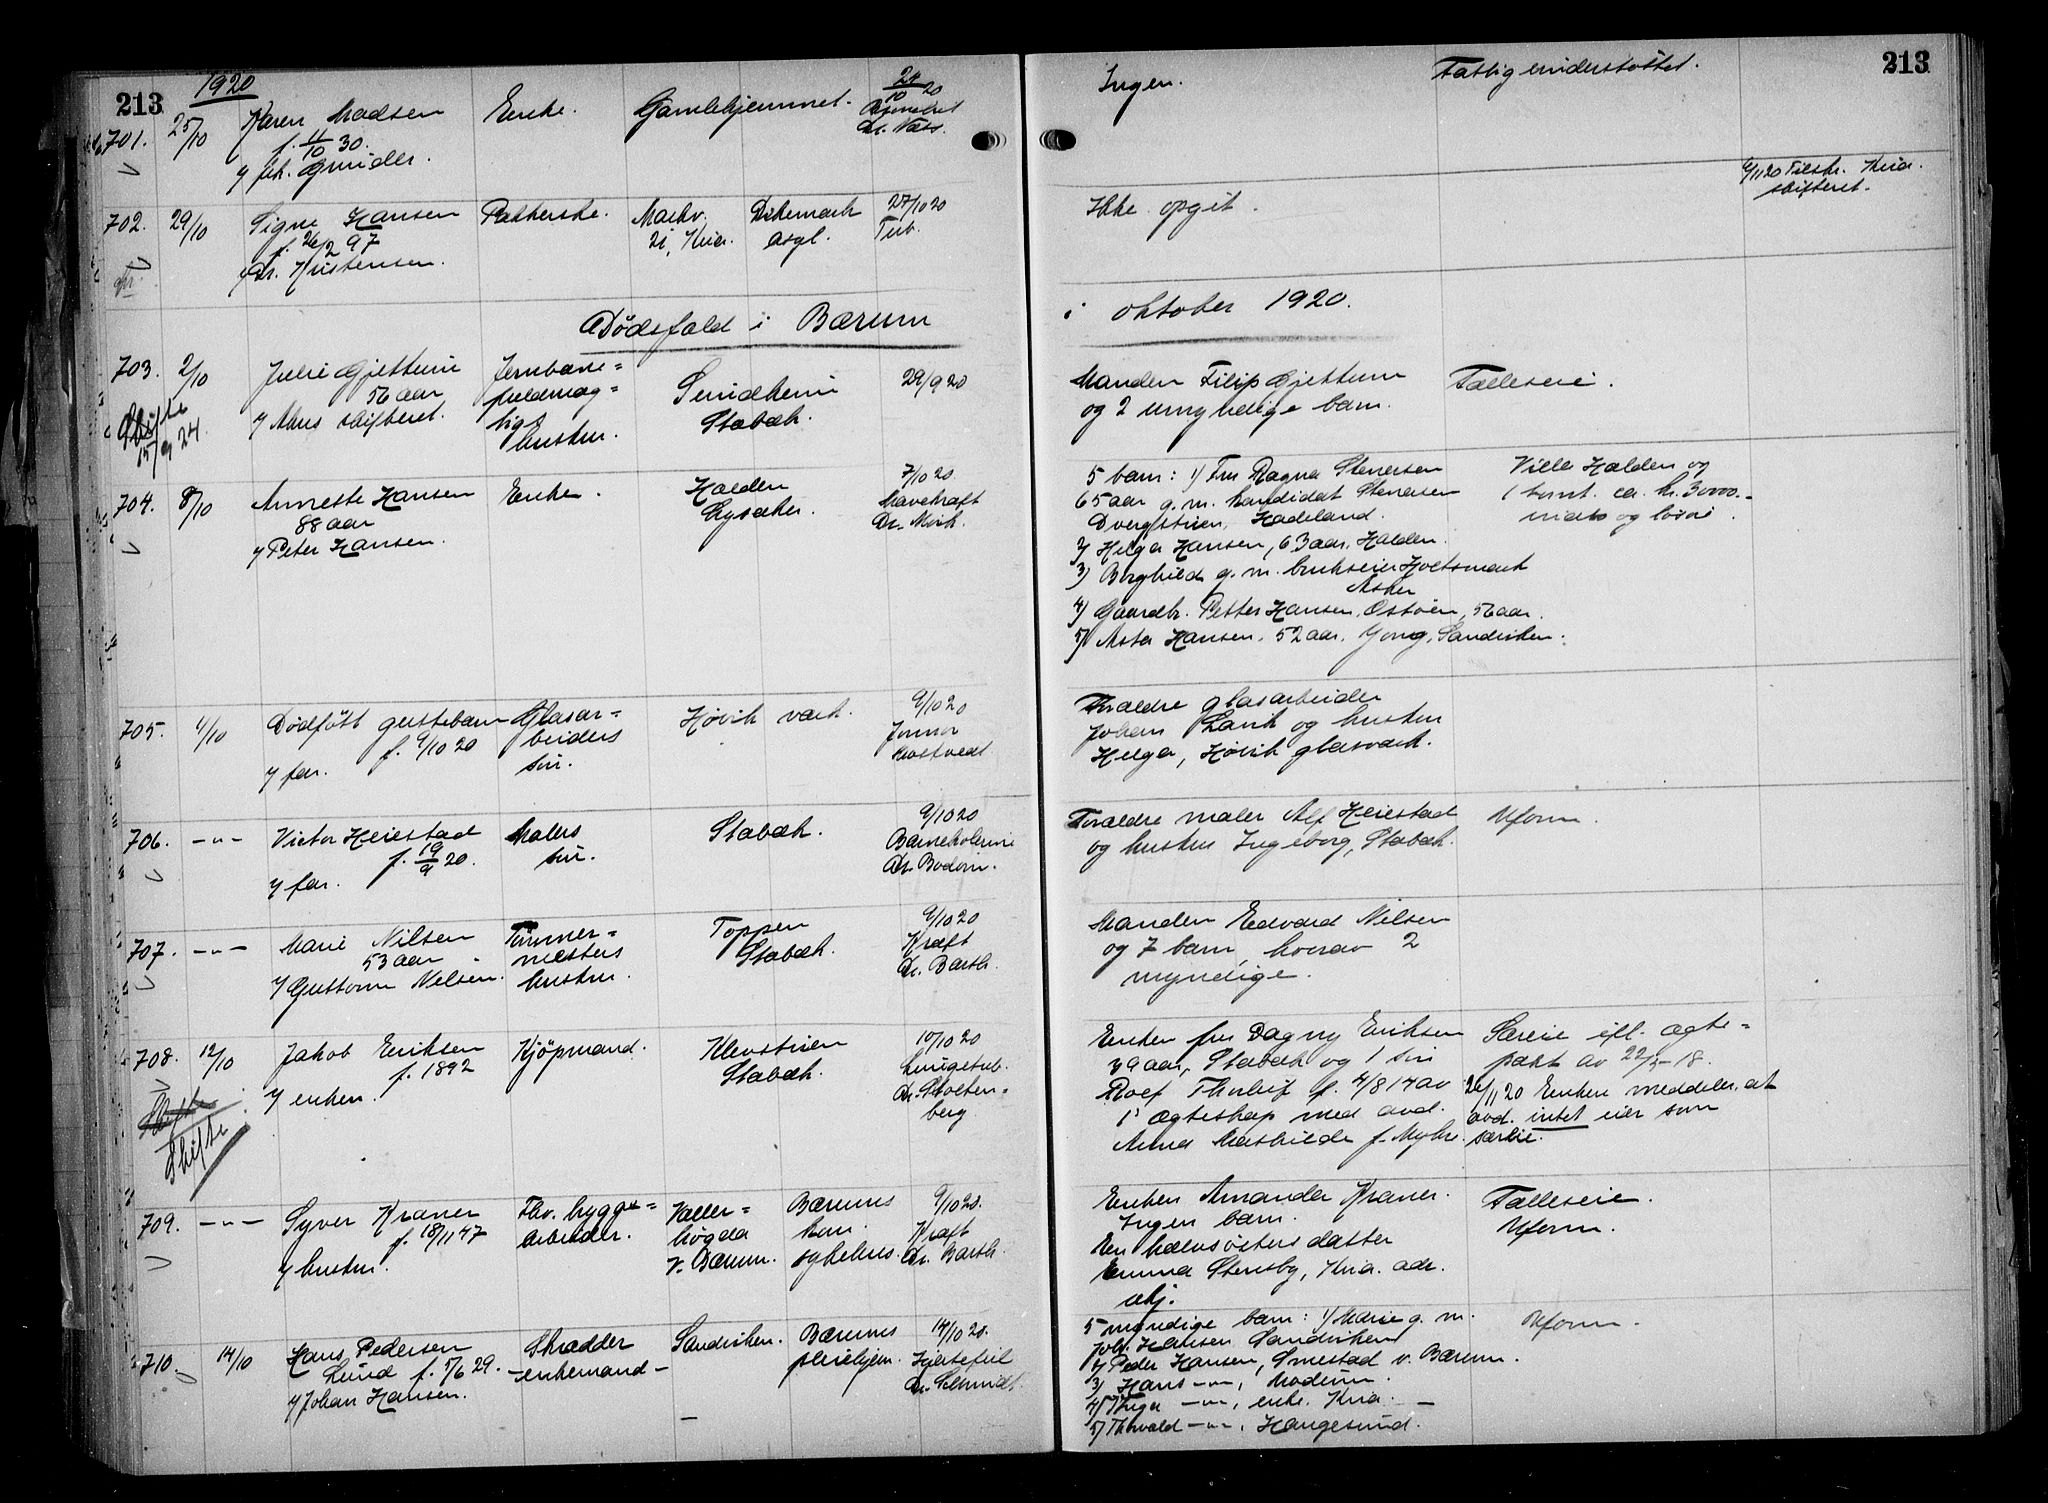 213
1920
701.
25/10
Karen Madsen
f. 11/10 30.
v/
Enke.
Gamlehjemmet.
24/10 20
Dr.
Ingen.
Fattigunderstøttet.
213
702.
29/10
Signe Hansen
f. 26/2 97
v/Dr. Kristensen.
Markv.
21, Kria.
Dikemark
asyl.
27/10 20
Tub.
Ikke opgit.
6/11 20 Tilskr. Kria.
skifteret.
Dødsfald i Bærum
i oktober 1920.
703.
2/10
Skifte
15/9 24.
Julie Gjettum
56 aar
v/ Akers skifteret.
Jernbane=
fuldmæg=
tigs
hustru.
Stabæk.
29/9 20
Manden Filip Gjettum
og 2 umyndige barn.
Fælleseie.
704.
8/10
Hansen
88 aar
v/ Peter Hansen.
Enke.
Halden
Lysaker.
7/10 20.
Mavekræft
Dr. Mørk.
5 barn: 1/ Fru Ragna Stenersen
65 aar g. m. kandidat Stenersen
Hadeland.
2/ Helga Hansen, 63 aar, Halden.
3) Borghild g. m. brukseier Holtsmark
Asker
4) Gaardbr. Petter Hansen, Ostøen, 56 aar.
5/ Asta Hansen, 52 aar, Jong, Sandviken.
Villa Halden og
1 tomt. ca. kr. 30000.-
og løsøre.
705.
Dødfødt guttebarn
f. 9/10 20
v/ far.
Glasar=
beiders
søn.
Høvik værk.
9/10 20
Jormor
Forældre glasarbeider
Johan og hustru
Helga, Høvik glasværk.
706.
-"-
Victor Heiestad
f. 19/9 20.
v/ far.
Malers
søn.
Stabæk.
9/10 20
Barnekolerine
Dr. Bodom.
Forældre maler Alf Heiestad
og hustru Ingeborg, Stabæk.
Uform.
707.
-"-
Marie Nilsen
53 aar
v/ Guttorm Nilsen.
Tømmer=
mesters
hustru.
Toppen
Stabæk.
9/10 20
Kræft
Dr. Barth.
Manden Edvard Nilsen
og 7 barn, hvorav 2
myndige.
708.
12/10
Skifte
Jakob Eriksen
f. 1892
v/ enken.
Kjøpmand.
Klevstuen
Stabæk.
10/10 20
Lungetub.
Dr. Stolten=
berg
Enken fru Dagny Eriksen
29 aar, Stabæk og 1 søn
Rolf Thorleif f. 4/8 14 av
1' ægteskap med avd.
Anna Mathilde f. Myhre.
Særeie ifl. ægte=
pakt av 22/5-18.
26/11 20 Enken meddeler at
avd. intet eier som
særeie.
709.
-"-
Syver Kraner
f. 18/11 47
v/ hustru.
Fhv. brygge=
arbeider.
Valler=
høgda
v. Bærum.
Bærums
kom.
sykehus.
9/10 20.
Kræft
Dr. Barth.
Enken Amanda Kraner.
Ingen barn.
En halvsøsters datter
Emma Stensby, Kria. adr.
ubj.
Fælleseie.
Uform.
710.
14/10
Hans Pedersen
Lund f. 5/6 29.
v/ Johan Hansen.
Skrædder
-enkemand-
Sandviken.
Bærums
pleiehjem.
14/10 20.
Hjertefeil
Dr. Schmidt.
5 myndige barn: 1/ Marie g. m.
Joh. Hansen Sandviken
2/ Peder Hansen, Smestad v. Bærum.
3) Hans -"-, Modum.
4) Inga -"-, enke. Kria.
5) Thorvald -"-, Haugesund.
Uform.